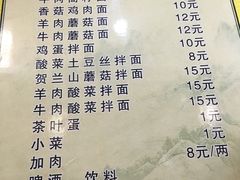 香菇肉面 10元
羊肉蘑菇面 12元
牛肉蘑菇面 12元
鸡蛋拌面 10元
酸菜土豆丝拌面 8元
贺兰山蘑菇拌面 15元
羊肉酸菜拌面 15元
牛肉酸菜拌面 15元
茶叶蛋 1元
小菜 1元
加肉 8元/两
啤酒 饮料